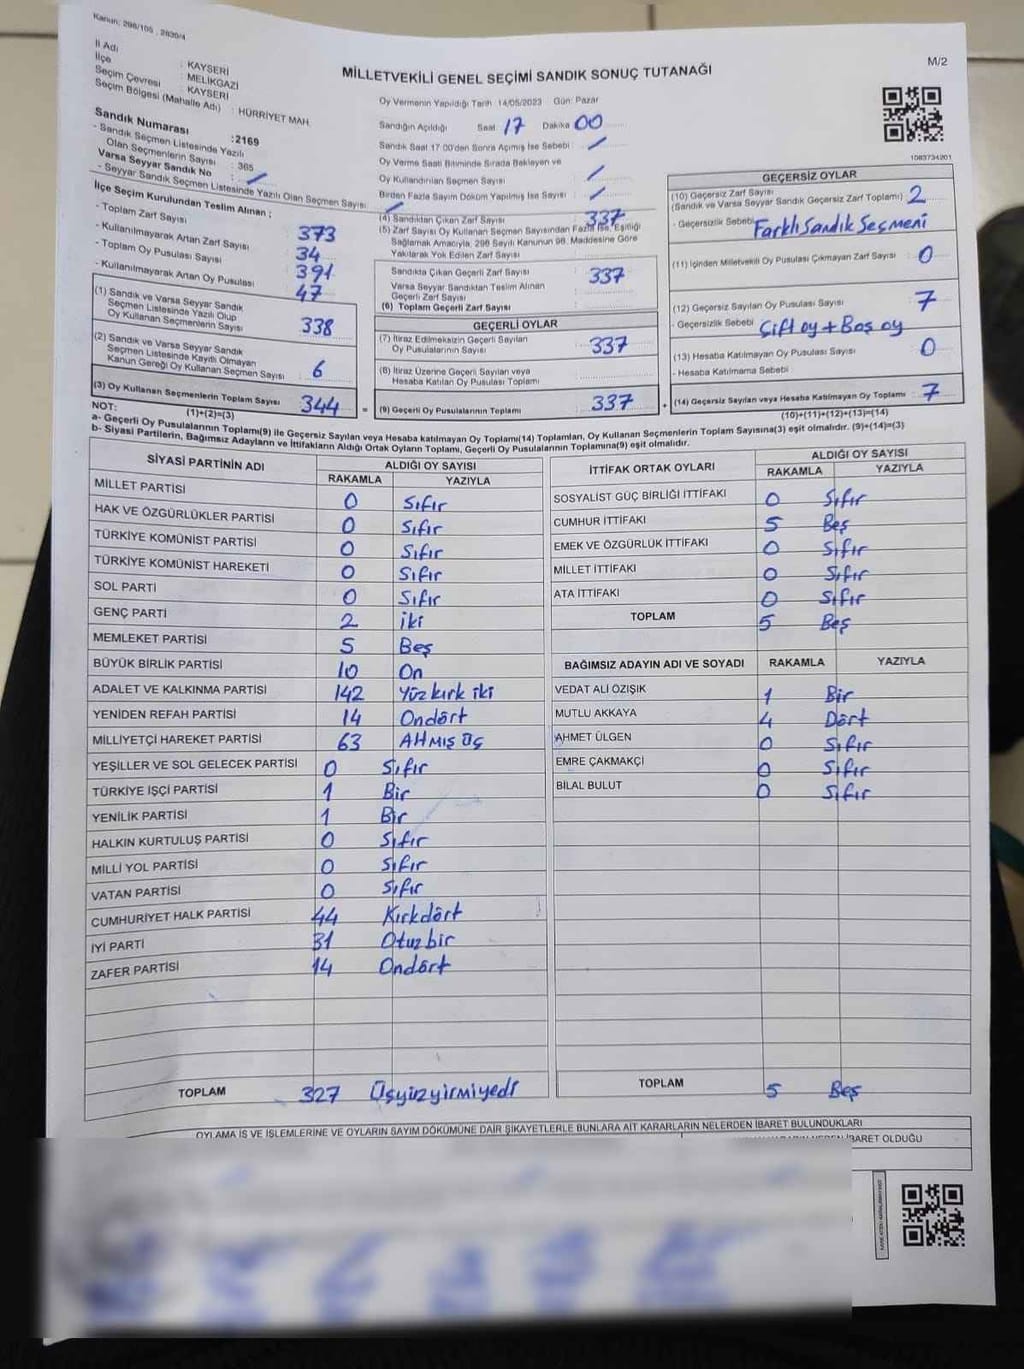 Kanun: 298/105 , 2830/4
M/2
MİLLETVEKİLİ GENEL SEÇİMİ SANDIK SONUÇ TUTANAĞI
İl Adı : KAYSERİ
İlçe : MELİKGAZİ
Seçim Çevresi : KAYSERİ
Seçim Bölgesi (Mahalle Adı) : HÜRRİYET MAH.
Sandık Numarası :2169
- Sandık Seçmen Listesinde Yazılı
Olan Seçmenlerin Sayısı : 365
Varsa Seyyar Sandık No : /
- Seyyar Sandık Seçmen Listesinde Yazılı Olan Seçmen Sayısı : /
İlçe Seçim Kurulundan Teslim Alınan ;
- Toplam Zarf Sayısı : 373
- Kullanılmayarak Artan Zarf Sayısı : 34
- Toplam Oy Pusulası Sayısı : 391
- Kullanılmayarak Artan Oy Pusulası : 47
(1) Sandık ve Varsa Seyyar Sandık
Seçmen Listesinde Yazılı Olup
Oy Kullanan Seçmenlerin Sayısı : 338
(2) Sandık ve Varsa Seyyar Sandık
Seçmen Listesinde Kayıtlı Olmayan
Kanun Gereği Oy Kullanan Seçmen Sayısı : 6
(3) Oy Kullanan Seçmenlerin Toplam Sayısı : 344 =
(1)+(2)=(3)
Oy Vermenin Yapıldığı Tarih 14/05/2023 Gün: Pazar
Sandığın Açıldığı Saat 17 Dakika 00
Sandık Saat 17:00'den Sonra Açımış İse Sebebi : /
Oy Verme Saati Bitiminde Sırada Bekleyen ve
Oy Kullandırılan Seçmen Sayısı : /
Birden Fazla Sayım Döküm Yapılmış İse Sayısı : /
(4) Sandıktan Çıkan Zarf Sayısı : 337
(5) Zarf Sayısı Oy Kullanan Seçmen Sayısından Fazla İse, Eşitliği
Sağlamak Amacıyla, 298 Sayılı Kanunun 98. Maddesine Göre
Yakılarak Yok Edilen Zarf Sayısı :
Sandıkta Çıkan Geçerli Zarf Sayısı : 337
Varsa Seyyar Sandıktan Teslim Alınan
Geçerli Zarf Sayısı
(6) Toplam Geçerli Zarf Sayısı :
GEÇERLİ OYLAR
(7) İtiraz Edilmeksizin Geçerli Sayılan
Oy Pusulalarının Sayısı : 337
(8) İtiraz Üzerine Geçerli Sayılan veya
Hesaba Katılan Oy Pusulası Toplamı :
(9) Geçerli Oy Pusulalarının Toplamı : 337 +
1083734201
GEÇERSİZ OYLAR
(10) Geçersiz Zarf Sayısı
(Sandık ve Varsa Seyyar Sandık Geçersiz Zarf Toplamı) : 2
- Geçersizlik Sebebi : Farklı Sandık Seçmeni
(11) İçinden Milletvekili Oy Pusulası Çıkmayan Zarf Sayısı : 0
(12) Geçersiz Sayılan Oy Pusulası Sayısı : 7
- Geçersizlik Sebebi : Çift oy + Boş oy
(13) Hesaba Katılmayan Oy Pusulası Sayısı : 0
- Hesaba Katılmama Sebebi
(14) Geçersiz Sayılan veya Hesaba Katılmayan Oy Toplamı : 7
(10)+(11)+(12)+(13)=(14)
NOT:
a- Geçerli Oy Pusulalarının Toplamı(9) ile Geçersiz Sayılan veya Hesaba katılmayan Oy Toplamı(14) Toplamları, Oy Kullanan Seçmenlerin Toplam Sayısına(3) eşit olmalıdır. (9)+(14)=(3)
b- Siyasi Partilerin, Bağımsız Adayların ve İttifakların Aldığı Ortak Oyların Toplamı, Geçerli Oy Pusulalarının Toplamına(9) eşit olmalıdır.
SİYASİ PARTİNİN ADI ALDIĞI OY SAYISI
RAKAMLA YAZIYLA
MİLLET PARTİSİ 0 Sıfır
HAK VE ÖZGÜRLÜKLER PARTİSİ 0 Sıfır
TÜRKİYE KOMÜNİST PARTİSİ 0 Sıfır
TÜRKİYE KOMÜNİST HAREKETİ 0 Sıfır
SOL PARTİ 0 Sıfır
GENÇ PARTİ 2 iki
MEMLEKET PARTİSİ 5 Beş
BÜYÜK BİRLİK PARTİSİ 10 On
ADALET VE KALKINMA PARTİSİ 142 Yüz kırk iki
YENİDEN REFAH PARTİSİ 14 Ondört
MİLLİYETÇİ HAREKET PARTİSİ 63 Altmış üç
YEŞİLLER VE SOL GELECEK PARTİSİ 0 Sıfır
TÜRKİYE İŞÇİ PARTİSİ 1 Bir
YENİLİK PARTİSİ 1 Bir
HALKIN KURTULUŞ PARTİSİ 0 Sıfır
MİLLİ YOL PARTİSİ 0 Sıfır
VATAN PARTİSİ 0 Sıfır
CUMHURİYET HALK PARTİSİ 44 Kırkdört
İYİ PARTİ 31 Otuzbir
ZAFER PARTİSİ 14 Ondört
TOPLAM 327 Üçyüzyirmiyedi
İTTİFAK ORTAK OYLARI ALDIĞI OY SAYISI
RAKAMLA YAZIYLA
SOSYALİST GÜÇ BİRLİĞİ İTTİFAKI 0 Sıfır
CUMHUR İTTİFAKI 5 Beş
EMEK VE ÖZGÜRLÜK İTTİFAKI 0 Sıfır
MİLLET İTTİFAKI 0 Sıfır
ATA İTTİFAKI 0 Sıfır
TOPLAM 5 Beş
BAĞIMSIZ ADAYIN ADI VE SOYADI RAKAMLA YAZIYLA
VEDAT ALİ ÖZIŞIK 1 Bir
MUTLU AKKAYA 4 Dört
AHMET ÜLGEN 0 Sıfır
EMRE ÇAKMAKÇİ 0 Sıfır
BİLAL BULUT 0 Sıfır
TOPLAM 5 Beş
OYLAMA İŞ VE İŞLEMLERİNE VE OYLARIN SAYIM DÖKÜMÜNE DAİR ŞİKAYETLERLE BUNLARA AİT KARARLARIN NELERDEN İBARET BULUNDUKLARI
İBARET OLDUĞU